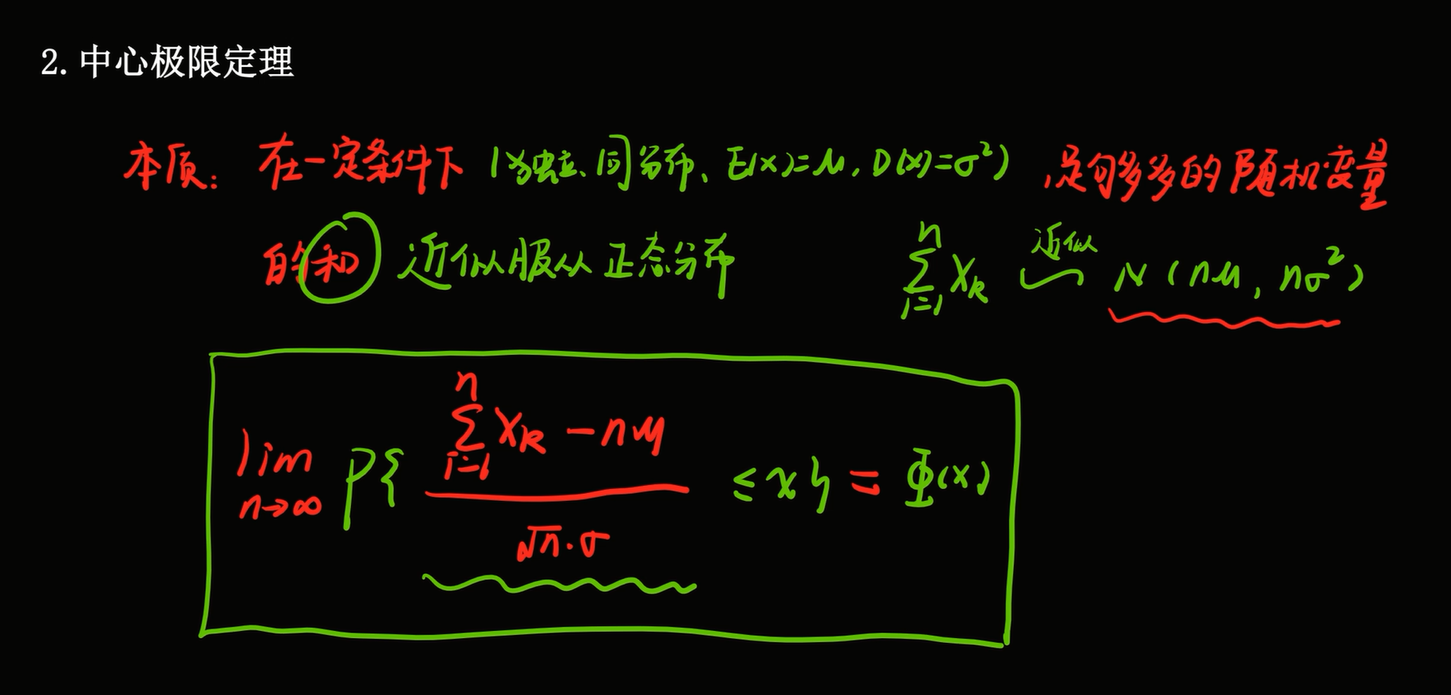 2. 中心极限定理
本质: 在一定条件下 (独立、同分布、E(X)=μ, D(X)=σ²) 足够多的随机变量
的和 近似服从正态分布 ∑_{i=1}^{n} X_k 近似 N(nμ, nσ²)
lim_{n→∞} P{ (∑_{i=1}^{n} X_k - nμ) / (√n·σ) ≤ x } = Φ(x)